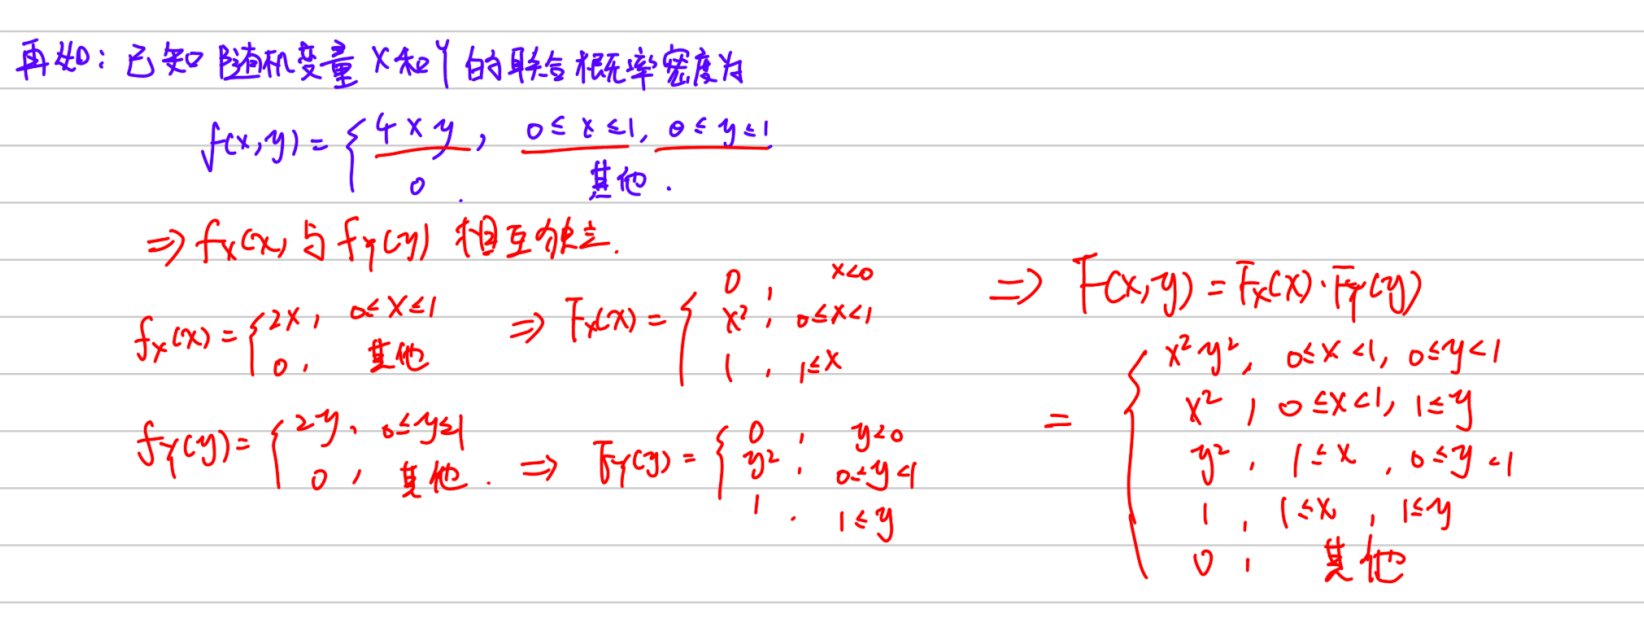 再如：已知随机变量X和Y的联合概率密度为
f(x,y) = { 4xy, 0≤x≤1, 0≤y≤1
0. 其他.
⇒ fX(x)与fY(y)相互独立.
fX(x) = { 2x, 0≤x≤1
0, 其他
⇒ FX(x) = { 0, x<0
x², 0≤x<1
1, 1≤x
fY(y) = { 2y, 0≤y≤1
0, 其他.
⇒ FY(y) = { 0, y<0
y², 0≤y<1
1. 1≤y
⇒ F(x,y) = FX(x)·FY(y)
= { x²y², 0≤x<1, 0≤y<1
x², 0≤x<1, 1≤y
y², 1≤x, 0≤y<1
1, 1≤x, 1≤y
0, 其他